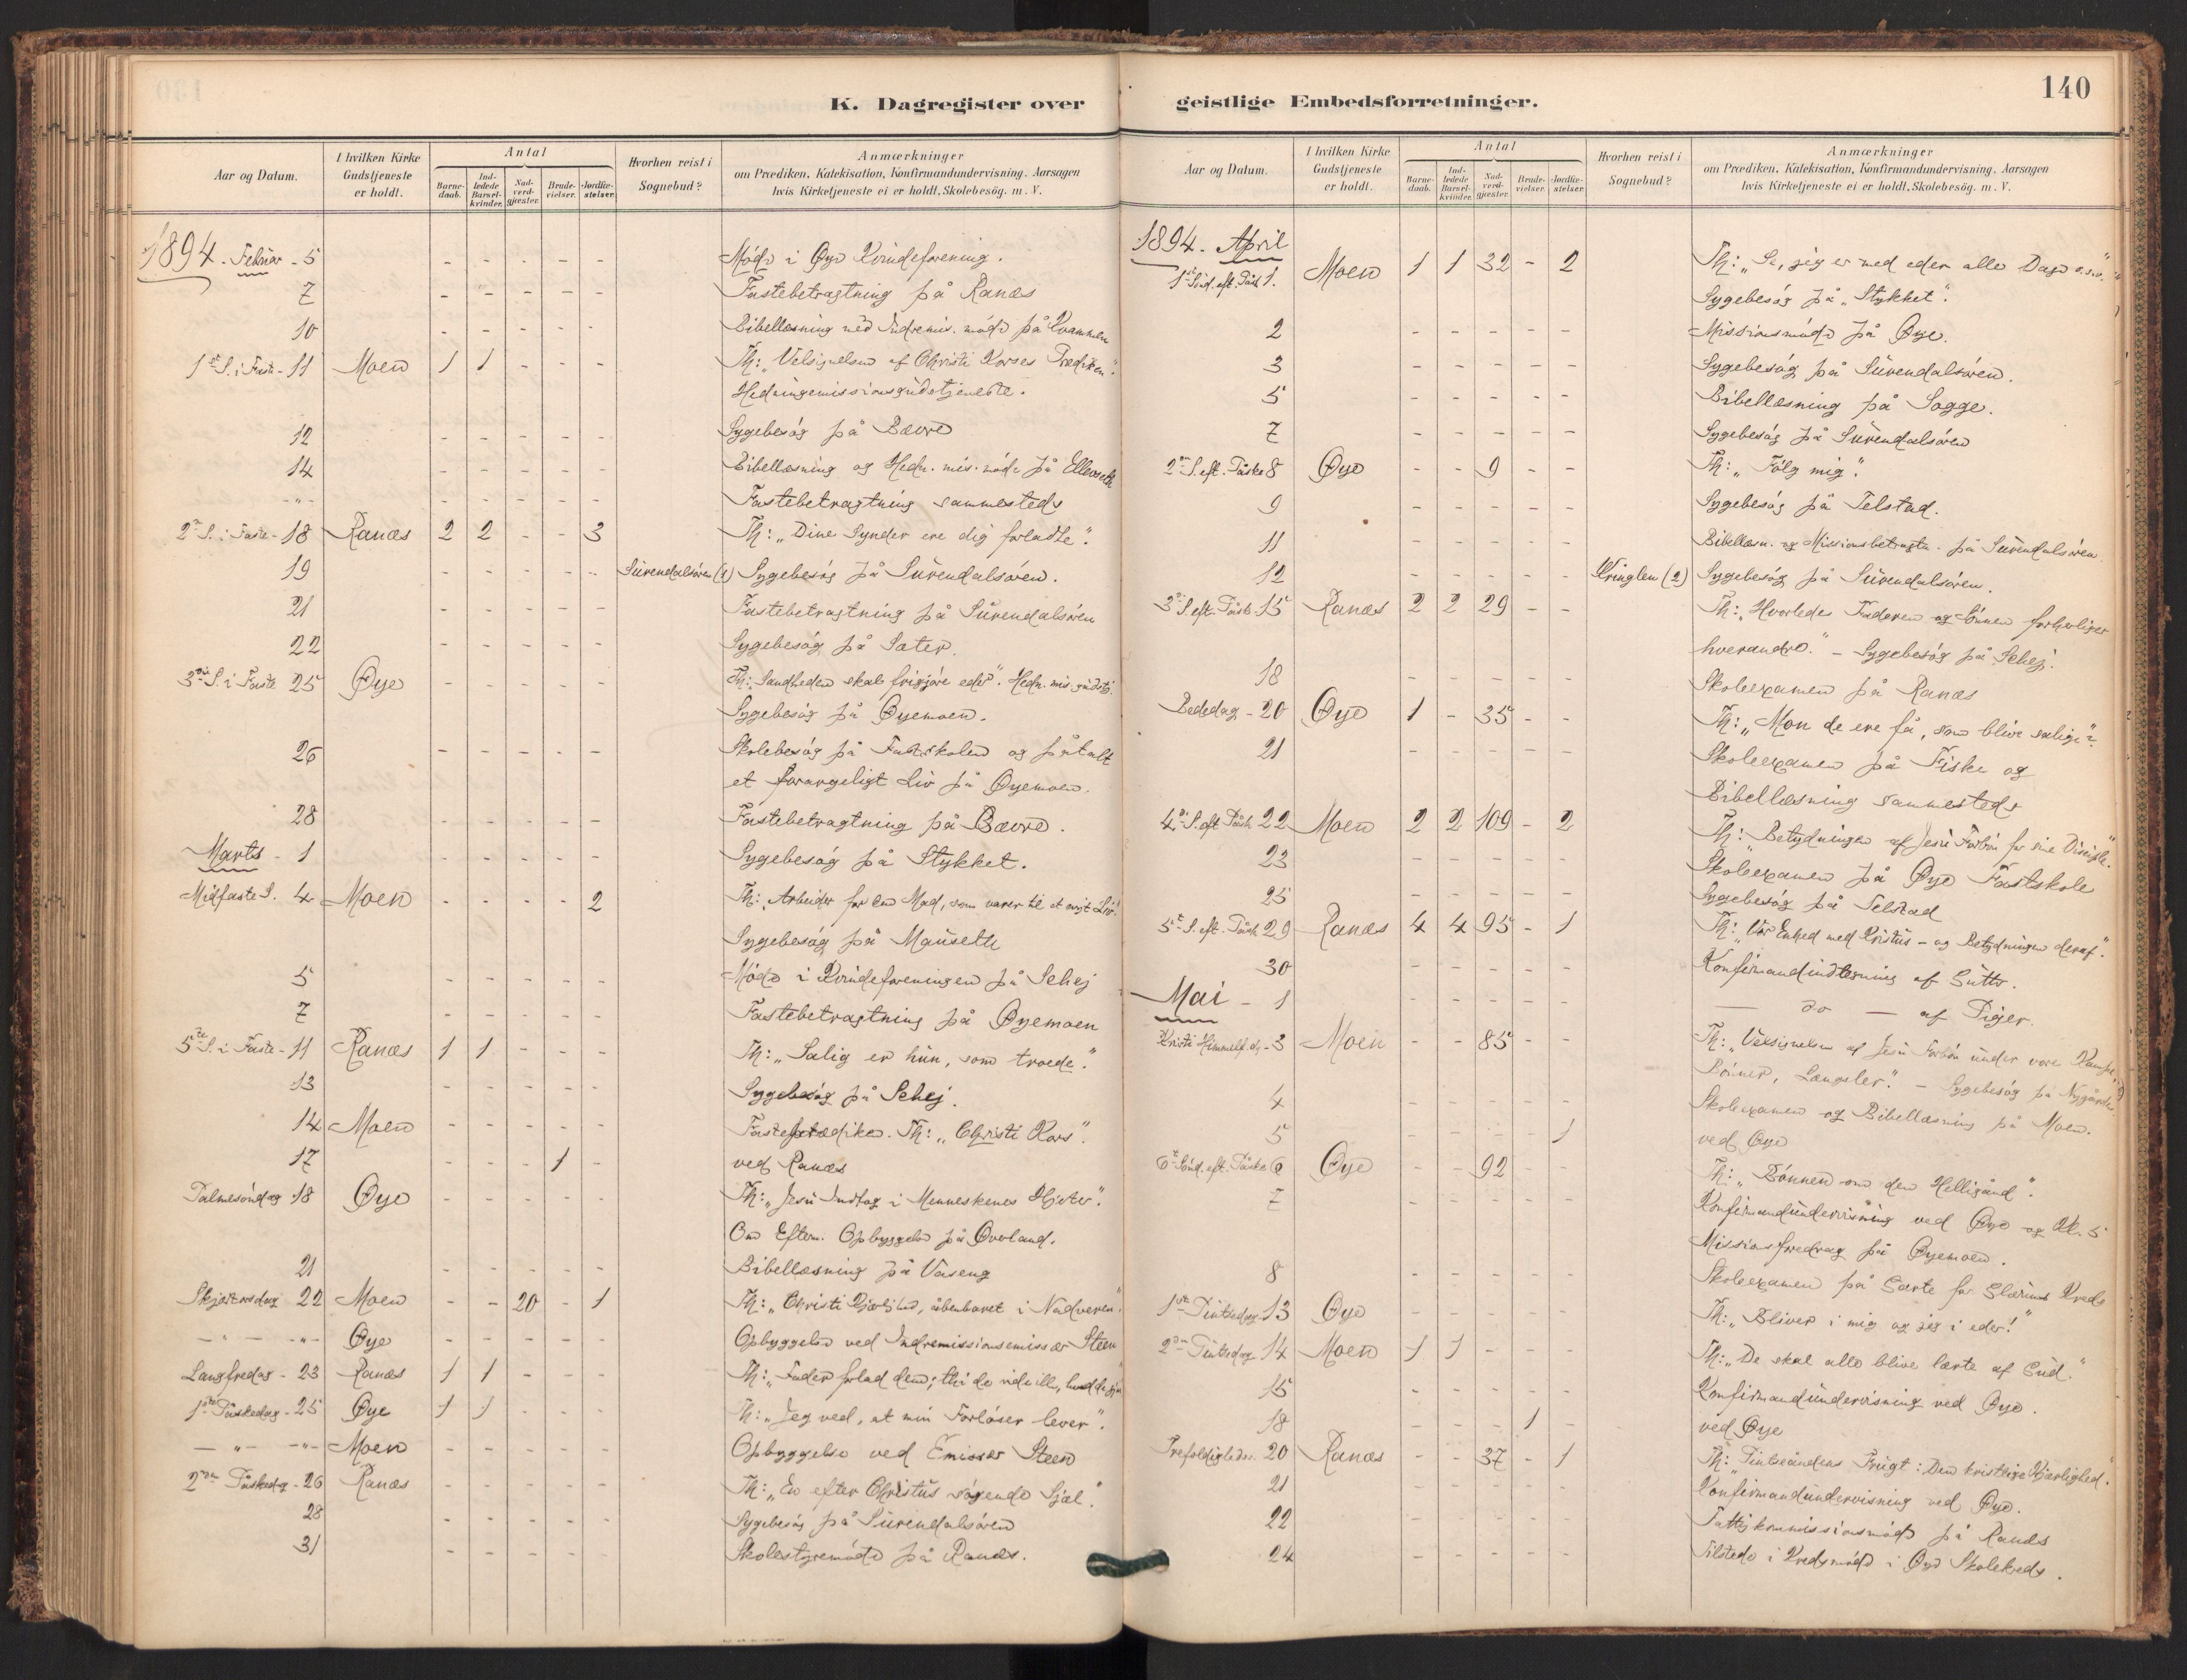 K. Dagregister over
Aar og Datum. I hvilken Kirke Gudstjeneste er holdt. Antal Barnedaab. Indledede Barselkvinder. Nadverdgjæster. Brudevielser. Jordfæstelser. Hvorhen reist i Sognebud? Anmærkninger om Prædiken, Katekisation, Konfirmandundervisning. Aarsagen hvis Kirketjeneste ei er holdt. Skolebesög. m. V.
1894. Februar - 5 - - - - - Möde i Øye Kvindeforening.
7 - - - - - Fastebetragtning på Ranæs
10 - - - - - Bibellæsning ved Indremis. möde på Kvammen
1ste S. i Faste - 11 Moen 1 1 - - - Th: „Velsignelsen af Christi Korses Prædiken".
Hedningemissionsgudstjeneste.
12 - - - - - Sygebesög på Bævre
14 - - - - - Bibellæsning og Hedn. mis. möde på Ellevseth
- " - - - - - - Fastebetragtning sammesteds
2n S. i Faste - 18 Ranæs 2 2 - - 3 Th: „Dine Synder ere dig forladte".
19 - - - - - Surendalsören (1) Sygebesög på Surendalsören.
21 - - - - - Fastebetragtning på Surendalsören
22 - - - - - Sygebesög på Sæter.
3die S. i Faste 25 Øye - - - - - Th: „Sandheden skal frigjöre eder". Hedn. mis. gudstj.
Sygebesög på Øyemoen.
26 - - - - - Skolebesög på Fastskolen og påtalt
et forargeligt Liv på Øyemoen.
28 - - - - - Fastebetragtning på Bævre.
Marts - 1 - - - - - Sygebesög på Stykket.
Midfaste S. 4 Moen - - - - 2 Th: „Arbeider for den Mad, som varer til et evigt Liv!
Sygebesög på Mauseth
5 - - - - - Möde i Kvindeforeningen på Schej
7 - - - - - Fastebetragtning på Øyemoen
5te S. i Faste - 11 Ranæs 1 1 - - - Th: „Salig er hun, som troede".
13 - - - - - Sygebesög på Schej.
14 Moen - - - - - Fasteprædiken. Th: „Christi Kors".
17 - - - 1 - ved Ranæs
Palmesöndag 18 Øye - - - - - Th: „Jesu Indtog i Menneskenes Hjerter".
Om Efterm. Opbyggelse på Øverland.
21 - - - - - Bibellæsning på Våseng
Skjærtorsdag 22 Moen - - 20 - 1 Th: „Christi Kjærlighed, åbenbaret i Nadveren".
- " - - " - Øye - - - - - Opbyggelse ved Indremissionsemissær Steen
Langfredag - 23 Ranæs 1 1 - - - Th: „Fader forlad dem; thi de vide ikke, hvad de gjör
1ste Påskedag - 25 Øye 1 1 - - - Th: „Jeg ved, at min Forlöser lever".
- " - - " - Moen - - - - - Opbyggelse ved Emissær Steen
2den Påskedag - 26 Ranæs - - - - - Th: „En efter Christus sögende Sjæl".
28 - - - - - Sygebesög på Surendalsören
31 - - - - - Skolestyremöde på Ranæs.
geistlige Embedsforretninger.
140
Aar og Datum. I hvilken Kirke Gudstjeneste er holdt. Antal Barnedaab. Indledede Barselkvinder. Nadverdgjæster. Brudevielser. Jordfæstelser. Hvorhen reist i Sognebud? Anmærkninger om Prædiken, Katekisation, Konfirmandundervisning. Aarsagen hvis Kirketjeneste ei er holdt. Skolebesög. m. V.
1894. April
1ste Sönd. eft. Påsk 1. Moen 1 1 32 - 2 Th: „Se, jeg er med eder alle Dage o.s.v."
Sygebesög på „Stykket".
2 - - - - - Missionsmöde på Øye.
3 - - - - - Sygebesög på Surendalsören.
5 - - - - - Bibellæsning på Sogge.
7 - - - - - Sygebesög på Surendalsören
2n S. eft. Påske 8 Øye - - 9 - - Th: „Fölg mig".
9 - - - - - Sygebesög på Telstad.
11 - - - - - Bibellæsn. og Missionsbetragtn. på Surendalsören
12 - - - - - Kringlen (2) Sygebesög på Surendalsören.
3die S. eft. Påsk 15 Ranæs 2 2 29 - - Th: „Hvorledes Faderen og Sönnen forherliger
hverandre." - Sygebesög på Schej.
18 - - - - - Skoleexamen på Ranæs
Bededag - 20 Øye 1 - 35 - - Th: „Mon de ere få, som blive salige"?
21 - - - - - Skoleexamen på Fiske og
Bibellæsning sammesteds
4de S. eft Påsk 22 Moen 2 2 109 - 2 Th: „Betydningen af Jesu Forbön for sine Disciple."
23 - - - - - Skoleexamen på Øye Fastskole
25 - - - - - Sygebesög på Telstad
5te S. eft. Påsk 29 Ranæs 4 4 95 - 1 Th: „Vår Enhed med Kristus - og Betydningen deraf".
30 - - - - - Konfirmandindlæsning af Gutter.
Mai - 1 - - - - - — do — af Piger.
Kristi Himmelf. dg - 3 Moen - - 85 - - Th: „Velsignelsen af Jesu Forbön under vore Kampe,
Bönner, Længsler." - Sygebesög på Nygården
4 - - - - - Skoleexamen og Bibellæsning på Moen.
5 - - - - 1 ved Øye
6te Sönd. eft. Påske 6 Øye - - 92 - - Th: „Bönnen om den Helligånd".
7 - - - - - Konfirmandundervisning ved Øye og Kl. 5
Missionsforedrag på Øyemoen.
8 - - - - - Skoleexamen på Garte for Glærums Kreds
1ste Pintsedag - 13 Øye - - - - - Th: „Bliver i mig og jeg i eder!"
2den Pintsedag 14 Moen 1 1 - - - Th: „De skal alle blive lærte af Gud."
15 - - - - - Konfirmandundervisning ved Øye.
18 - - - 1 - ved Øye
Trefoldigheds. 20 Ranæs - - 37 - 1 Th: „Pintseåndens Frugt: Den kristlige Kjærlighed."
21 - - - - - Konfirmandundervisning ved Øye.
22 - - - - - Fattigkommissionsmöde på Ranæs
24 - - - - - Tilstede i Kredsmöde i Øye Skolekreds.